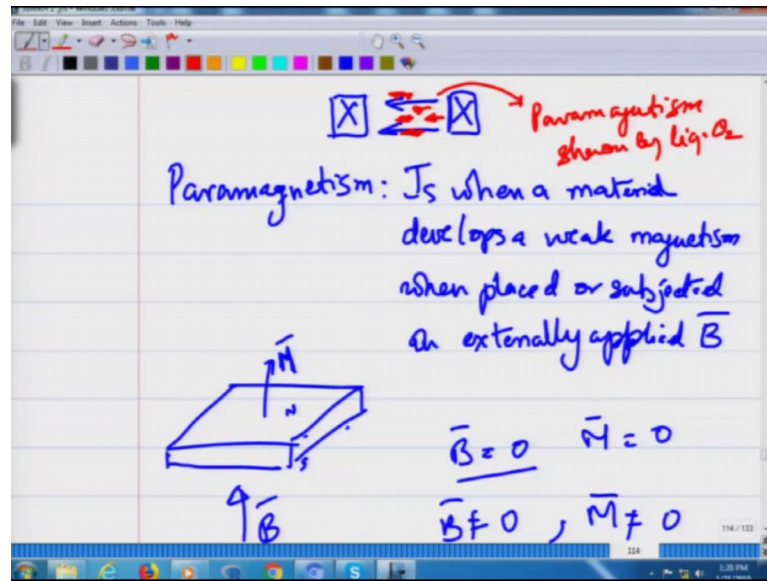 File Edit View Insert Actions Tools Help
B I
X X
Paramagnetism
shown by liq. O2
Paramagnetism: Is when a material
develops a weak magnetism
when placed or subjected
an externally applied B̅
M̅
N
S
B̅ = 0 M̅ = 0
B̅
B̅ ≠ 0 , M̅ ≠ 0
114 / 133
114
S
1:20 PM